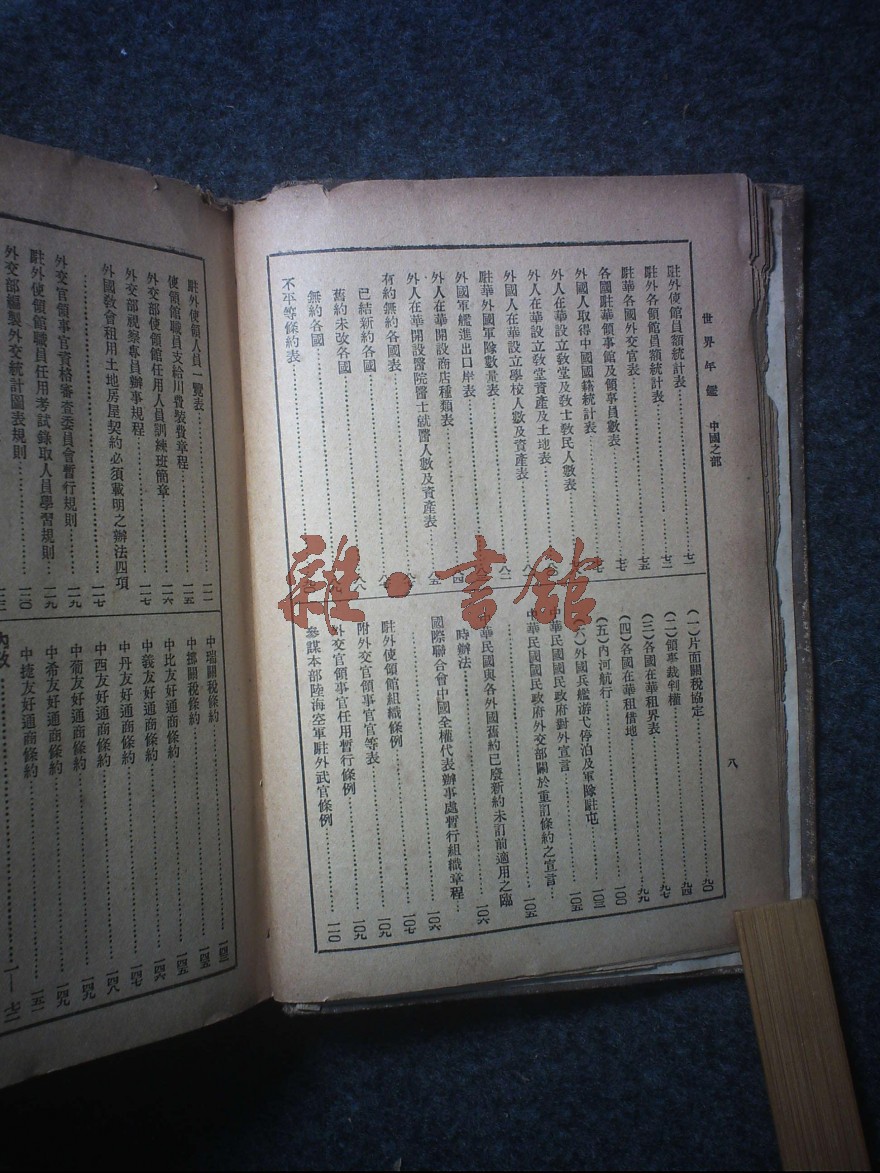 世界年鑑　中國之部
八
駐外使領館員額統計表……七一
駐外各領館員額統計表……七二
駐華各國外交官表……七五
各國駐華領事館及領事員數表……七七
外國人取得中國國籍統計表……七
外人在華設立教堂及教士教民人數表
外人在華設立教堂資產及土地表……八
外國人在華設立學校人數及資產表……八二
駐華外國軍隊數量表……八
外國軍艦進出口岸表……四
外人在華開設商店種類表……八五
外人在華開設醫院醫士就醫人數及資產表
有約無約各國表……八
已結新約各國……八
舊約未改各國……九
無約各國
不平等條約表
（一）片面關稅協定……九〇
（二）領事裁判權……九四
（三）各國在華租界表……九七
（四）各國在華租借地……九九
（五）內河航行……一〇〇
（六）外國兵艦游弋停泊及軍隊駐屯……一〇三
中華民國國民政府對外宣言……一〇五
中華民國國民政府外交部關於重訂條約之宣言……
……一〇五
中華民國與各外國舊約已廢新約未訂前適用之臨
時辦法……一〇六
國際聯合會中國全權代表辦事處暫行組織章程…
……一〇六
駐外使領館組織條例……一〇七
附外交官領事官官等表……一〇九
外交官領事官任用暫行條例……一〇九
參謀本部陸海空軍駐外武官條例……一一〇
駐外使領人員一覽表……一一一
使領館職員支給川費裝費章程……一一五
外交部使領館任用人員訓練班簡章……一一六
外交部視察專員辦事規程……一一七
外國教會租用土地房屋契約必須載明之辦法四項
……一一七
外交官領事官資格審查委員會暫行規則……一一九
駐外使領館職員任用考試錄取人員學習規則……一一九
外交部編製外交統計圖表規則……一二〇
中瑞關稅條約……一四三
中挪關稅條約……一四五
中比友好通商條約……一四五
中義友好通商條約……一四六
中丹友好通商條約……一四七
中西友好通商條約……一四八
中葡友好通商條約……一四九
中希友好通商條約……一四九
中捷友好通商條約……一五一
內政……一—七二
雜·書館